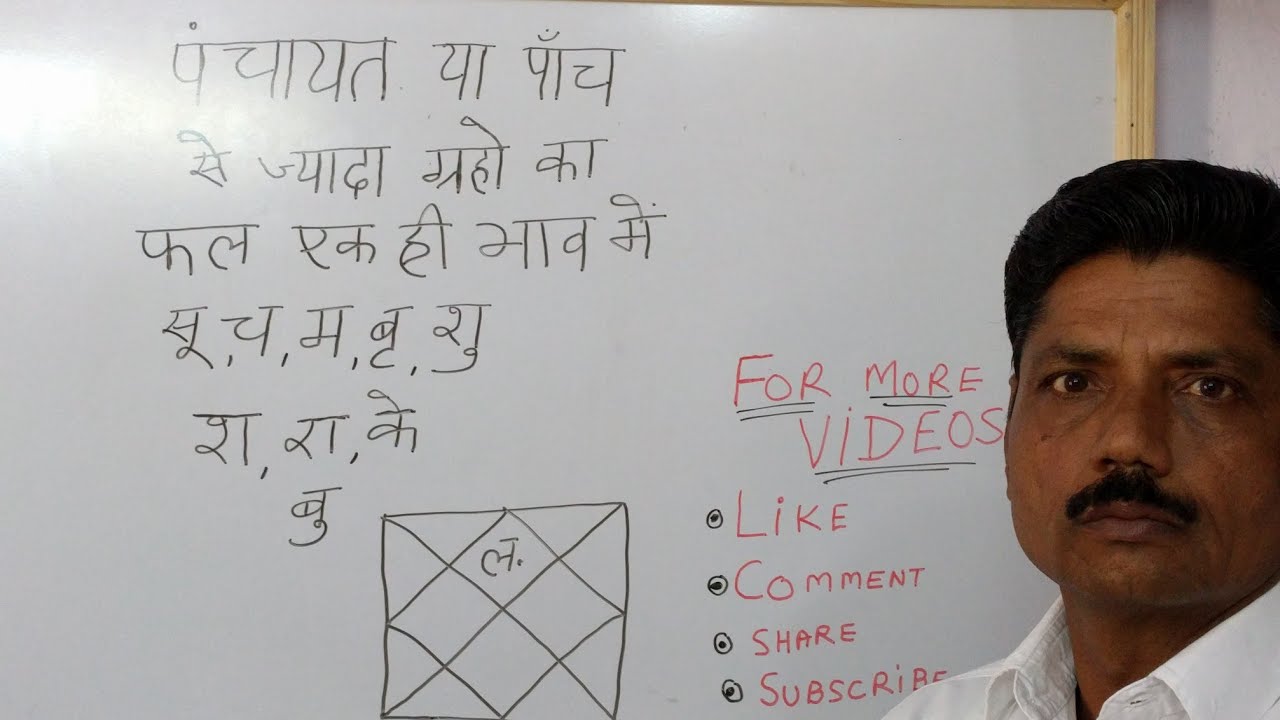 पंचायत या पाँच
से ज्यादा ग्रहो का
फल एक ही भाव में
सू,च,म,बृ,शु
श,रा,के
बु
ल.
FOR MORE
VIDEOS
LIKE
COMMENT
SHARE
SUBSCRIBE